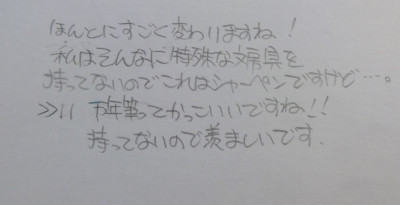 ほんとにすごく変わりますね!
私はそんなに特殊な文房具を
持ってないのでこれはシャーペンですけど…。
≫11 万年筆ってかっこいいですね!!
持ってないので羨ましいです.